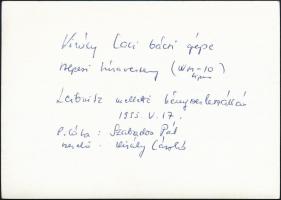 Király Laci bácsi gépe
alpesi túraverseny (WM-10) típus
Leibnitz melletti kényszerleszállás
1955. V. 17.
Pilóta: Szabados Pál
szerelő - Király László